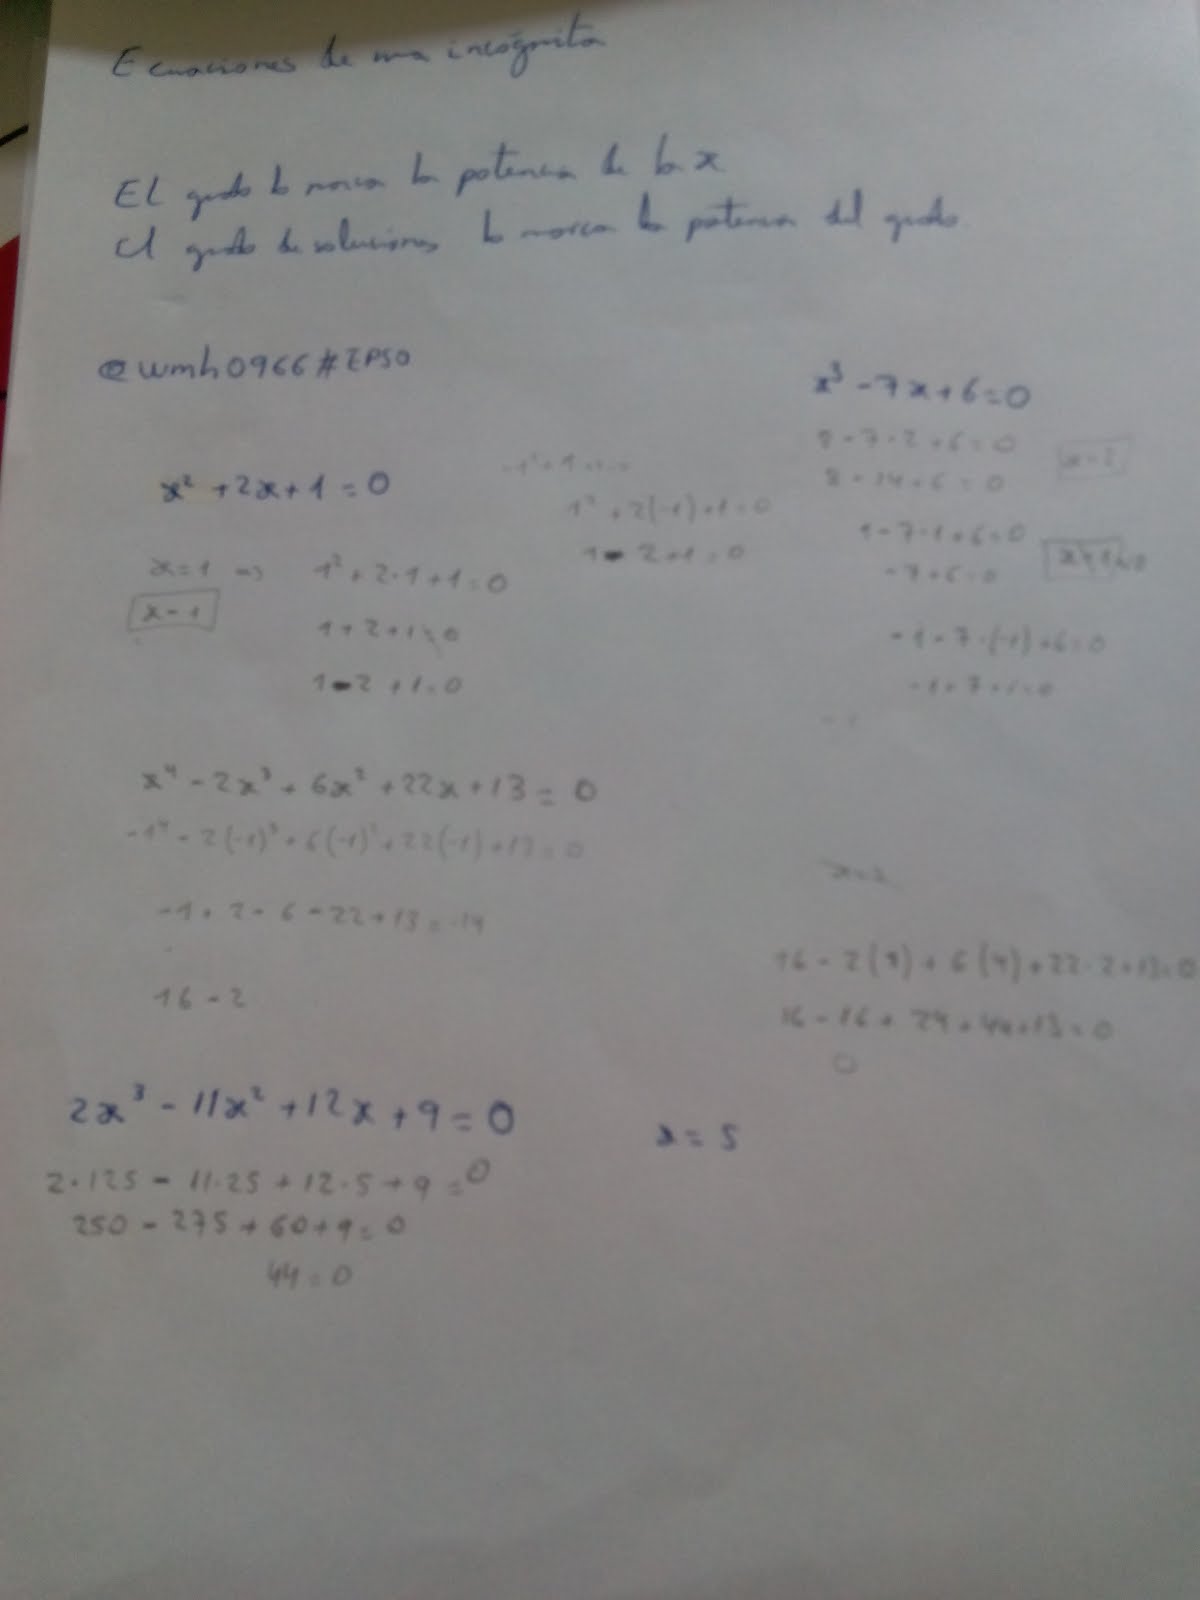 Ecuaciones de una incógnita
El grado lo marca la potencia de la x
El grado de soluciones lo marca la potencia del grado
@wmh0966#EPSO
x³ - 7x + 6 = 0
8 - 7 · 2 + 6 = 0
8 - 14 + 6 = 0
1 - 7 · 1 + 6 = 0
-7 + 6 = 0
-1 - 7 · (-1) + 6 = 0
x² + 2x + 1 = 0
1² + 2(-1) + 1 = 0
1 - 2 + 1 = 0
x = 1 => 1² + 2 · 1 + 1 = 0
x - 1
1 + 2 + 1 = 0
1 - 2 + 1 = 0
x⁴ - 2x³ + 6x² + 22x + 13 = 0
-1⁴ - 2(-1)³ + 6(-1)² + 22(-1) + 13 = 0
-1 + 2 - 6 - 22 + 13 = -14
16 - 2
16 - 2(8) + 6(4) + 22 · 2 + 13 = 0
16 - 16 + 24 + 44 + 13 = 0
0
2x³ - 11x² + 12x + 9 = 0
x = 5
2 · 125 - 11 · 25 + 12 · 5 + 9 = 0
250 - 275 + 60 + 9 = 0
44 = 0